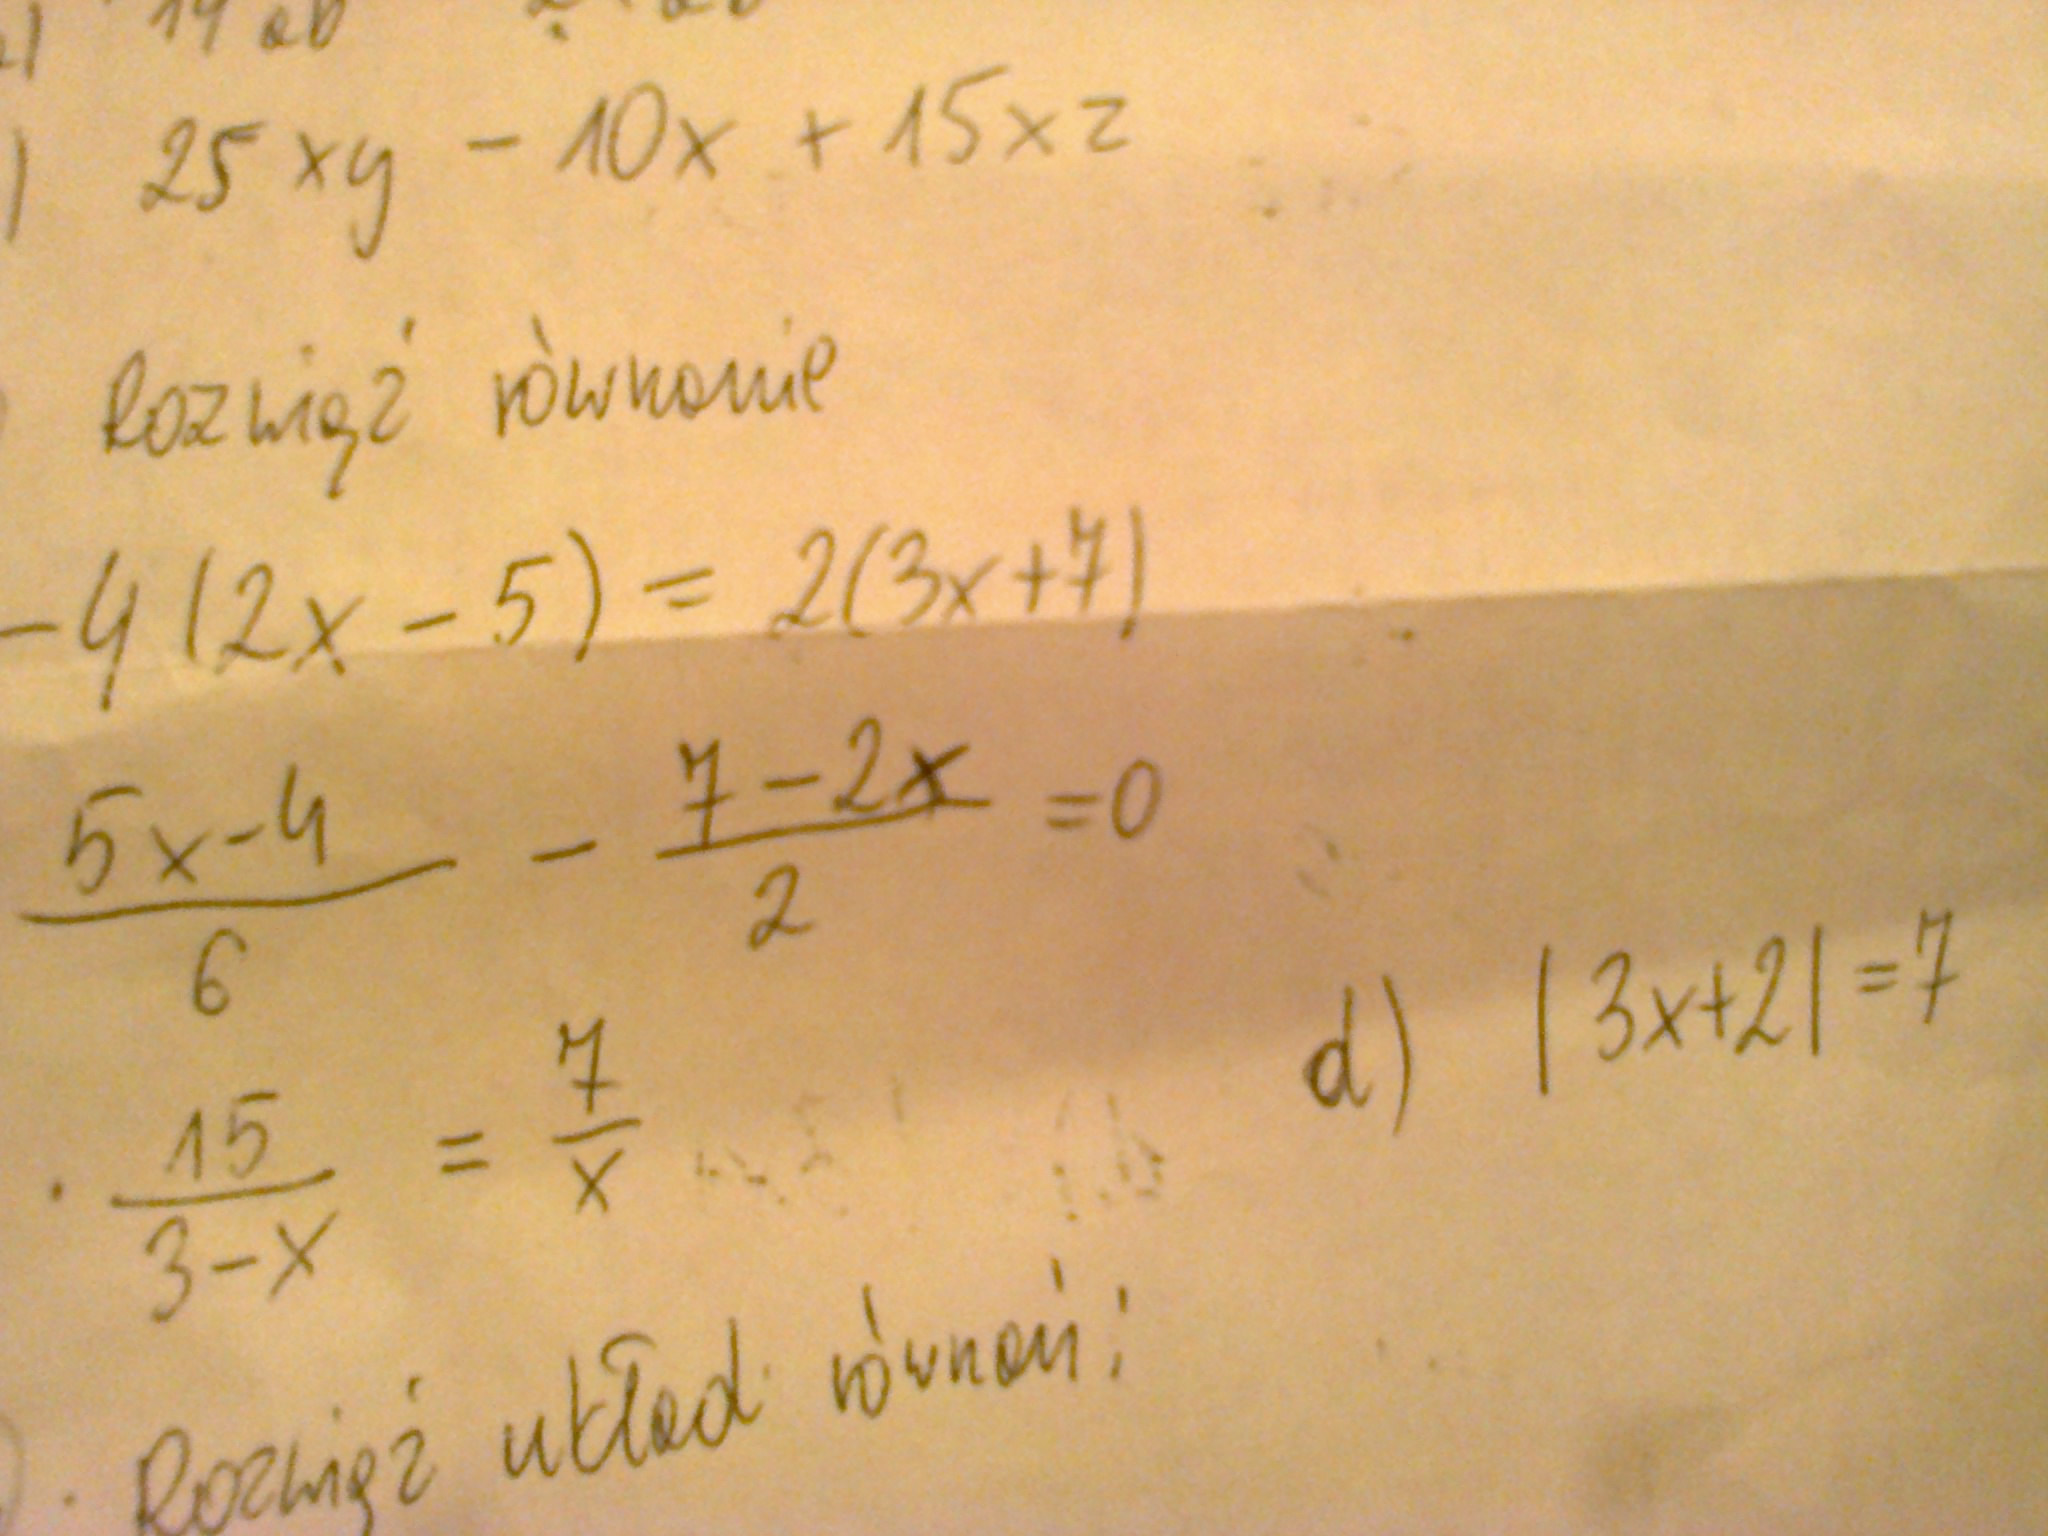 14ab
25xy - 10x + 15xz
Rozwiąż równanie
-4(2x - 5) = 2(3x+7)
5x-4 / 6 - 7-2x / 2 = 0
15 / 3-x = 7 / x
d) |3x+2| = 7
Rozwiąż układ równań: